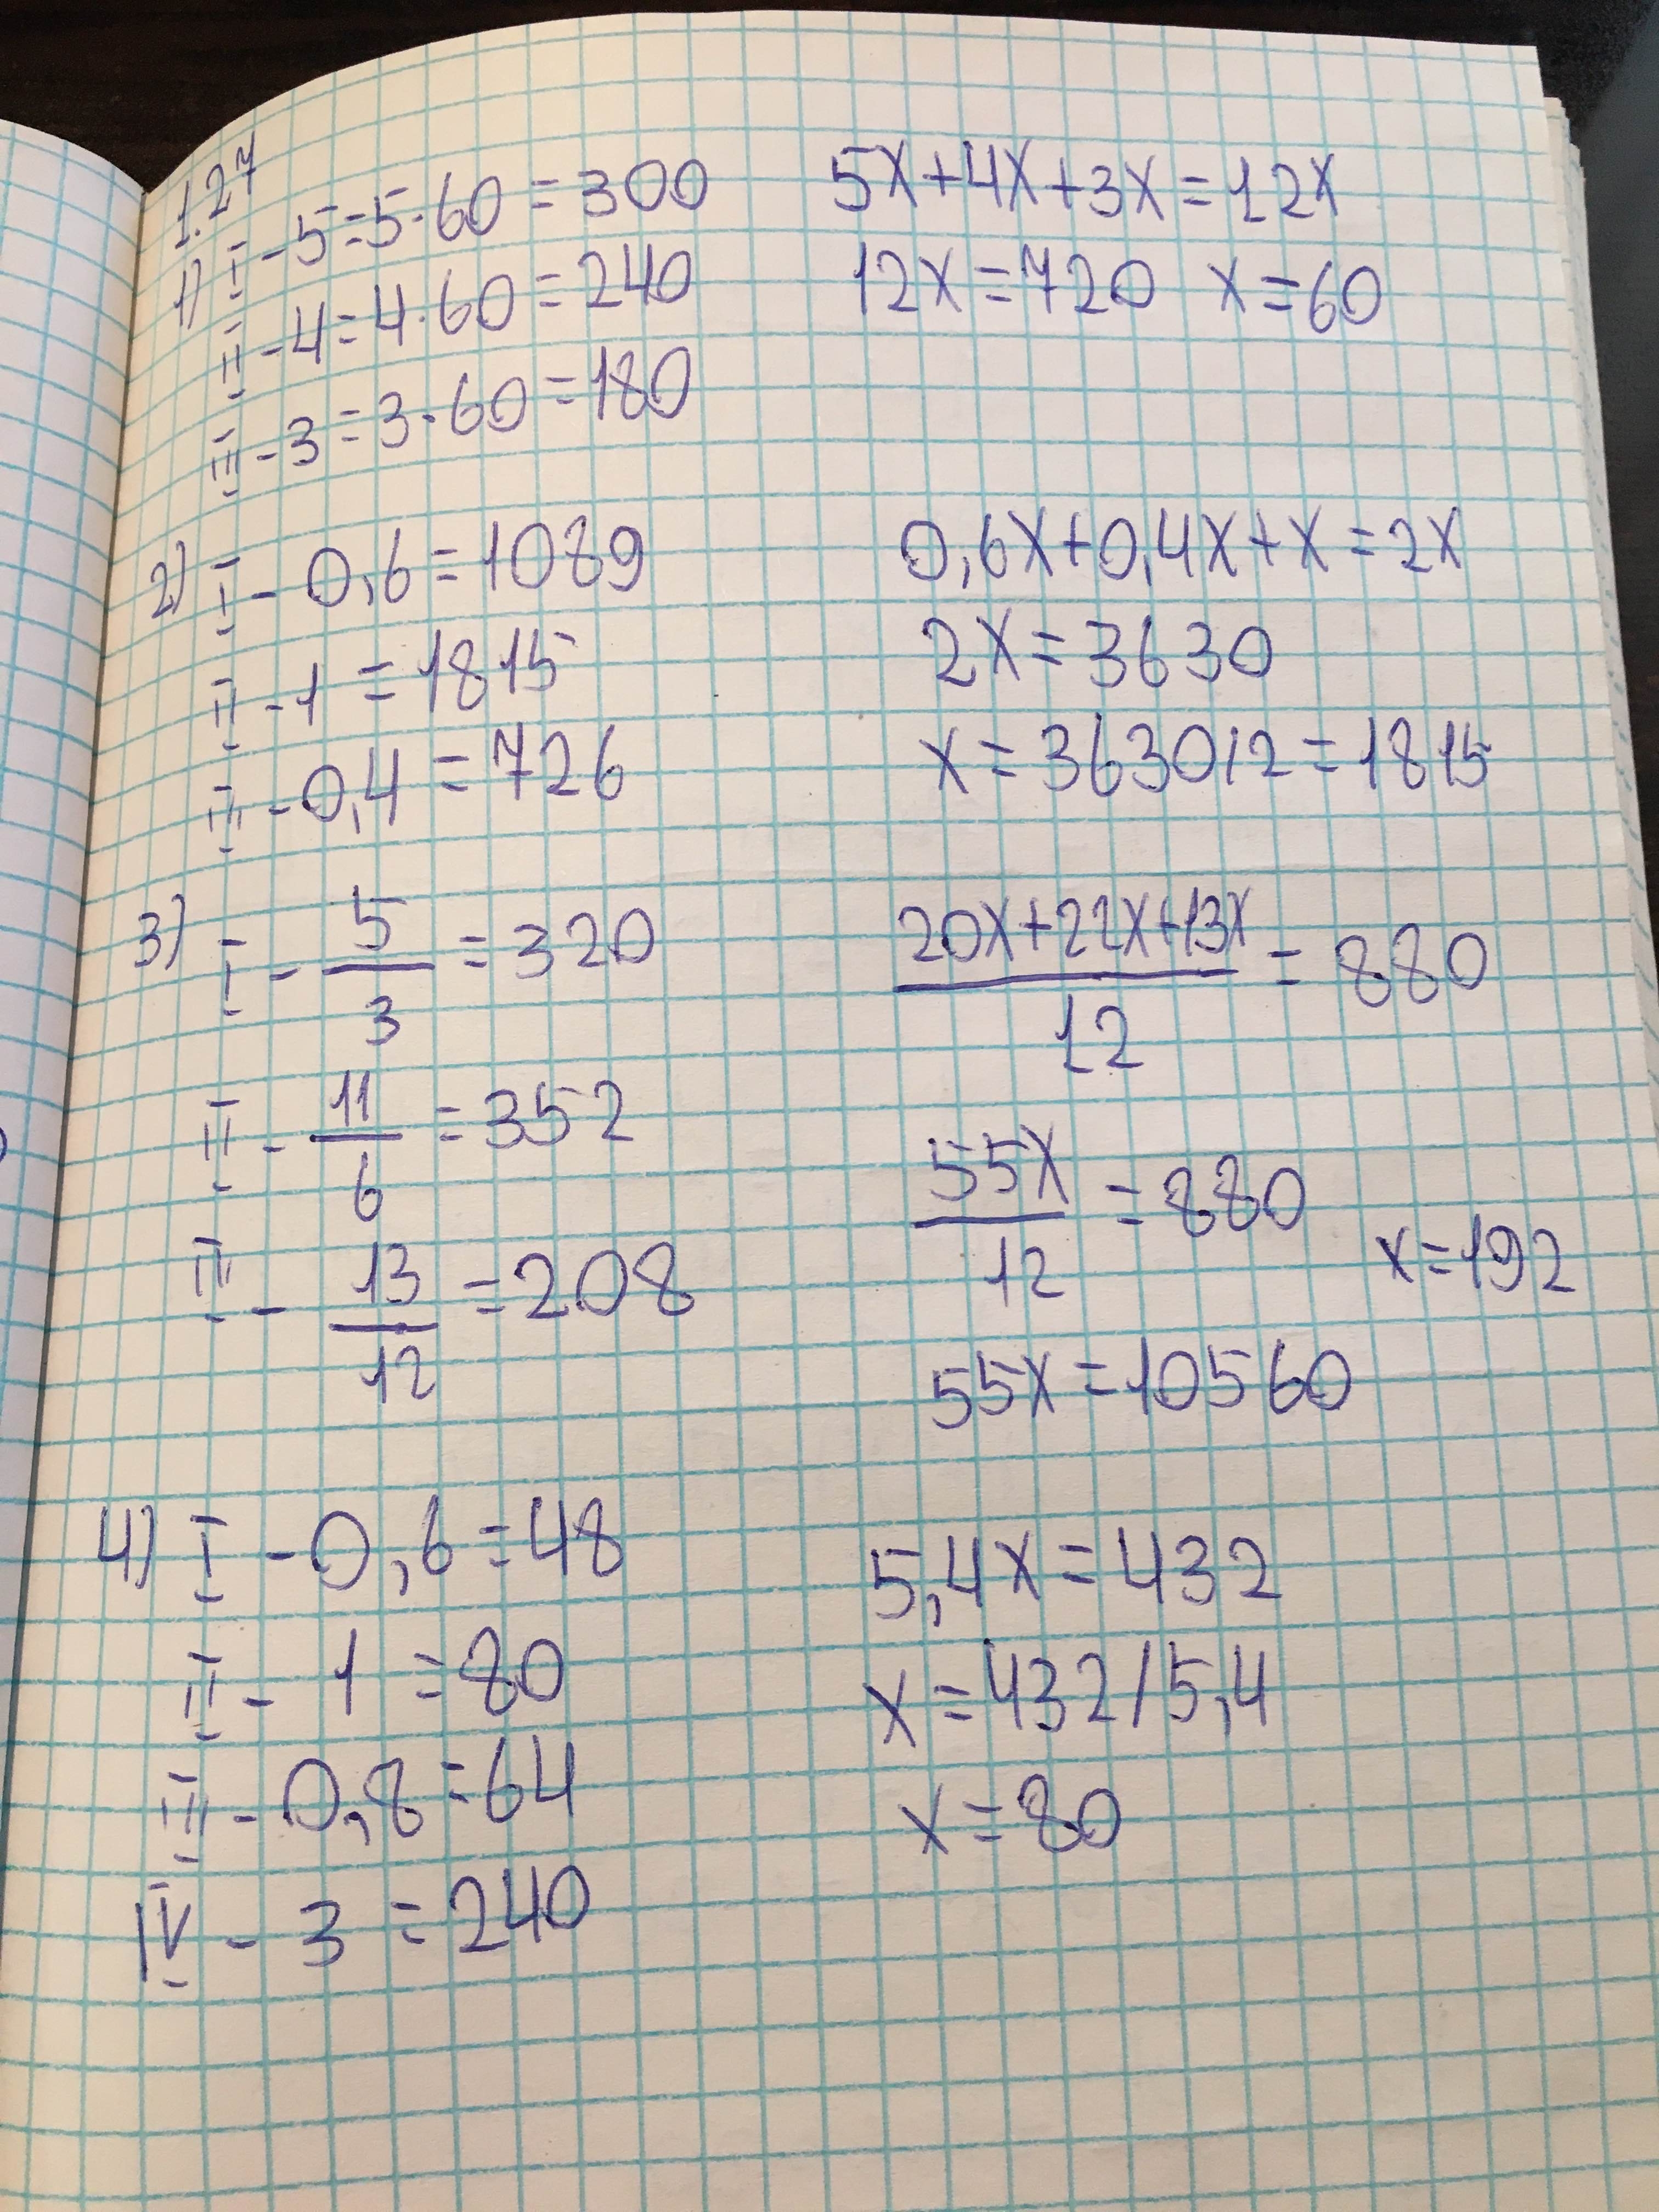 1.27
1) I - 5 = 5·60 = 300
II - 4 = 4·60 = 240
III - 3 = 3·60 = 180
5x+4x+3x=12x
12x=720 x=60
2) I - 0,6 = 1089
II - 1 = 1815
III - 0,4 = 726
0,6x+0,4x+x=2x
2x=3630
x=3630/2=1815
3) I - 5/3 = 320
II - 11/6 = 352
III - 13/12 = 208
20x+22x+13x/12 = 880
55x/12 = 880
x=192
55x=10560
4) I - 0,6 = 48
II - 1 = 80
III - 0,8 = 64
IV - 3 = 240
5,4x=432
x=432/5,4
x=80